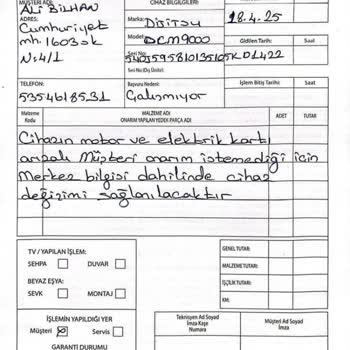 MÜŞTERİ ADI:
Ali Bilhan
ADRES:
Cumhuriyet
mh. 1603 sk
N:4/1
TELEFON:
5354618531
CİHAZ BİLGİLERİ:
Marka: Digitsu
Model: DCM9000
Seri No:
540J59581013510SK01422
Seri No: (Dış Ünite):
Başvuru Nedeni:
Çalışmıyor
18.4.25
Gidilen Tarih: Saat
İşlem Bitiş Tarihi: Saat
Malzeme Kodu
MALZEME ADI
ONARIM YAPILAN YEDEK PARÇA ADI
ADET
TUTAR
Cihazın motor ve elektrik kartı
arızalı Müşteri onarım istemediği için
Merkez bilgisi dahilinde cihaz
değişimi sağlanılacaktır
TV / YAPILAN İŞLEM:
SEHPA DUVAR
BEYAZ EŞYA:
SEVK MONTAJ
İŞLEMİN YAPILDIĞI YER
Müşteri Servis
GARANTİ DURUMU
GENEL TUTAR:
MALZEME TUTARI:
İŞÇİLİK TUTARI:
KM:
Teknisyen Ad Soyad
İmza Kaşe
Numara
Müşteri Ad Soyad
İmza